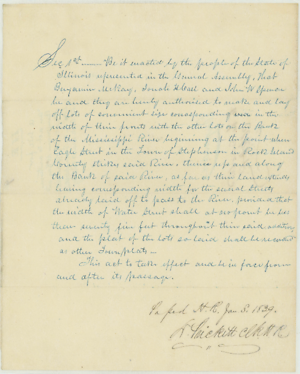 Sec 1st — Be it enacted by the people of the State of
Illinois represented in the General Assembly, That
Benjamin McKay, and John W Spencer
be and they are hereby authorised to make and lay
off lots of convenient size corresponding in
width of their fronts with the other lots on the Bank
of the Mississippi River beginning at the point where
Eagle Street in the Town of Stephenson in Rock Island
County strikes said River, thence up and along
the Bank of said River, as far as their land extends
leaving corresponding width for the several Streets
already laid off to pass to the River, provided that
the width of Water Street shall at no point be less
than seventy five feet throughout their said
and the plat of the lots so laid shall be recorded
as other Town plats —
This act to take effect and be in force from
and after its passage.
Passed H. R. Jan 5. 1839.
D Prickett Clk H R